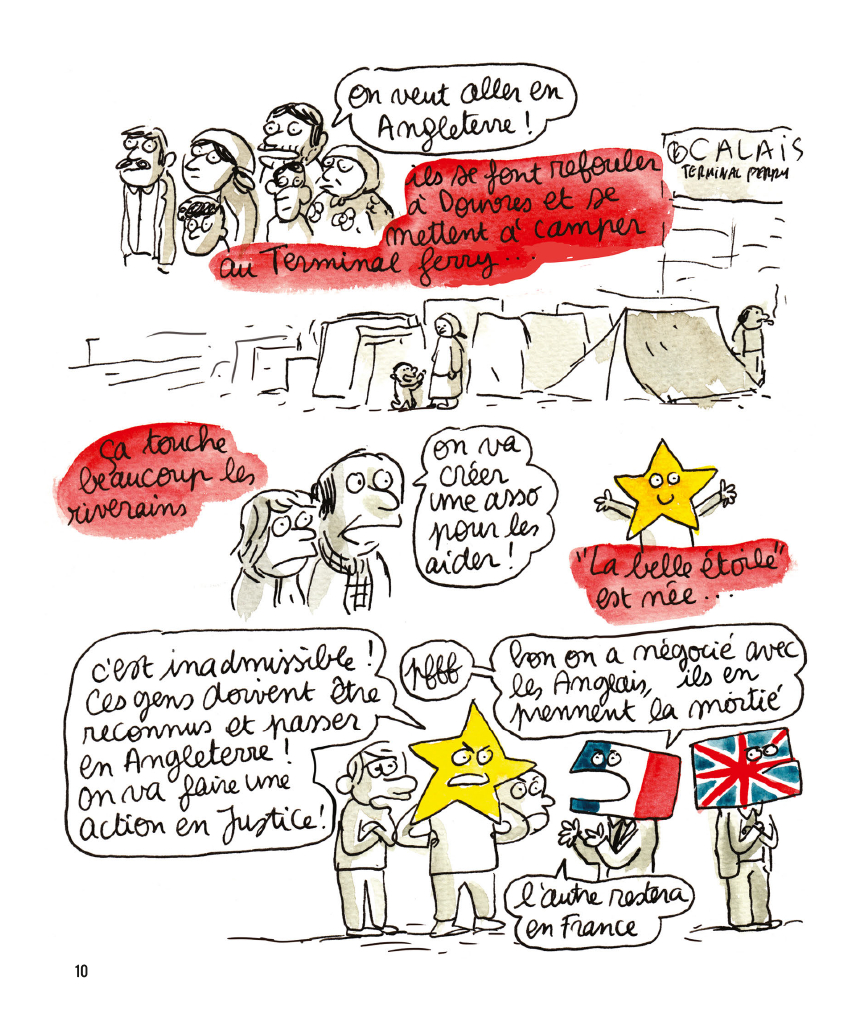 on veut aller en
Angleterre !
CALAIS
TERMINAL FERRY
ils se font refouler
à Douvres et se
mettent à camper
au Terminal ferry...
ça touche
beaucoup les
riverains
on va
créer
une asso
pour les
aider !
"La belle étoile"
est née...
c'est inadmissible !
ces gens doivent être
reconnus et passer
en Angleterre !
on va faire une
action en Justice !
pfff
bon on a négocié avec
les Anglais, ils en
prennent la moitié
l'autre restera
en France
10